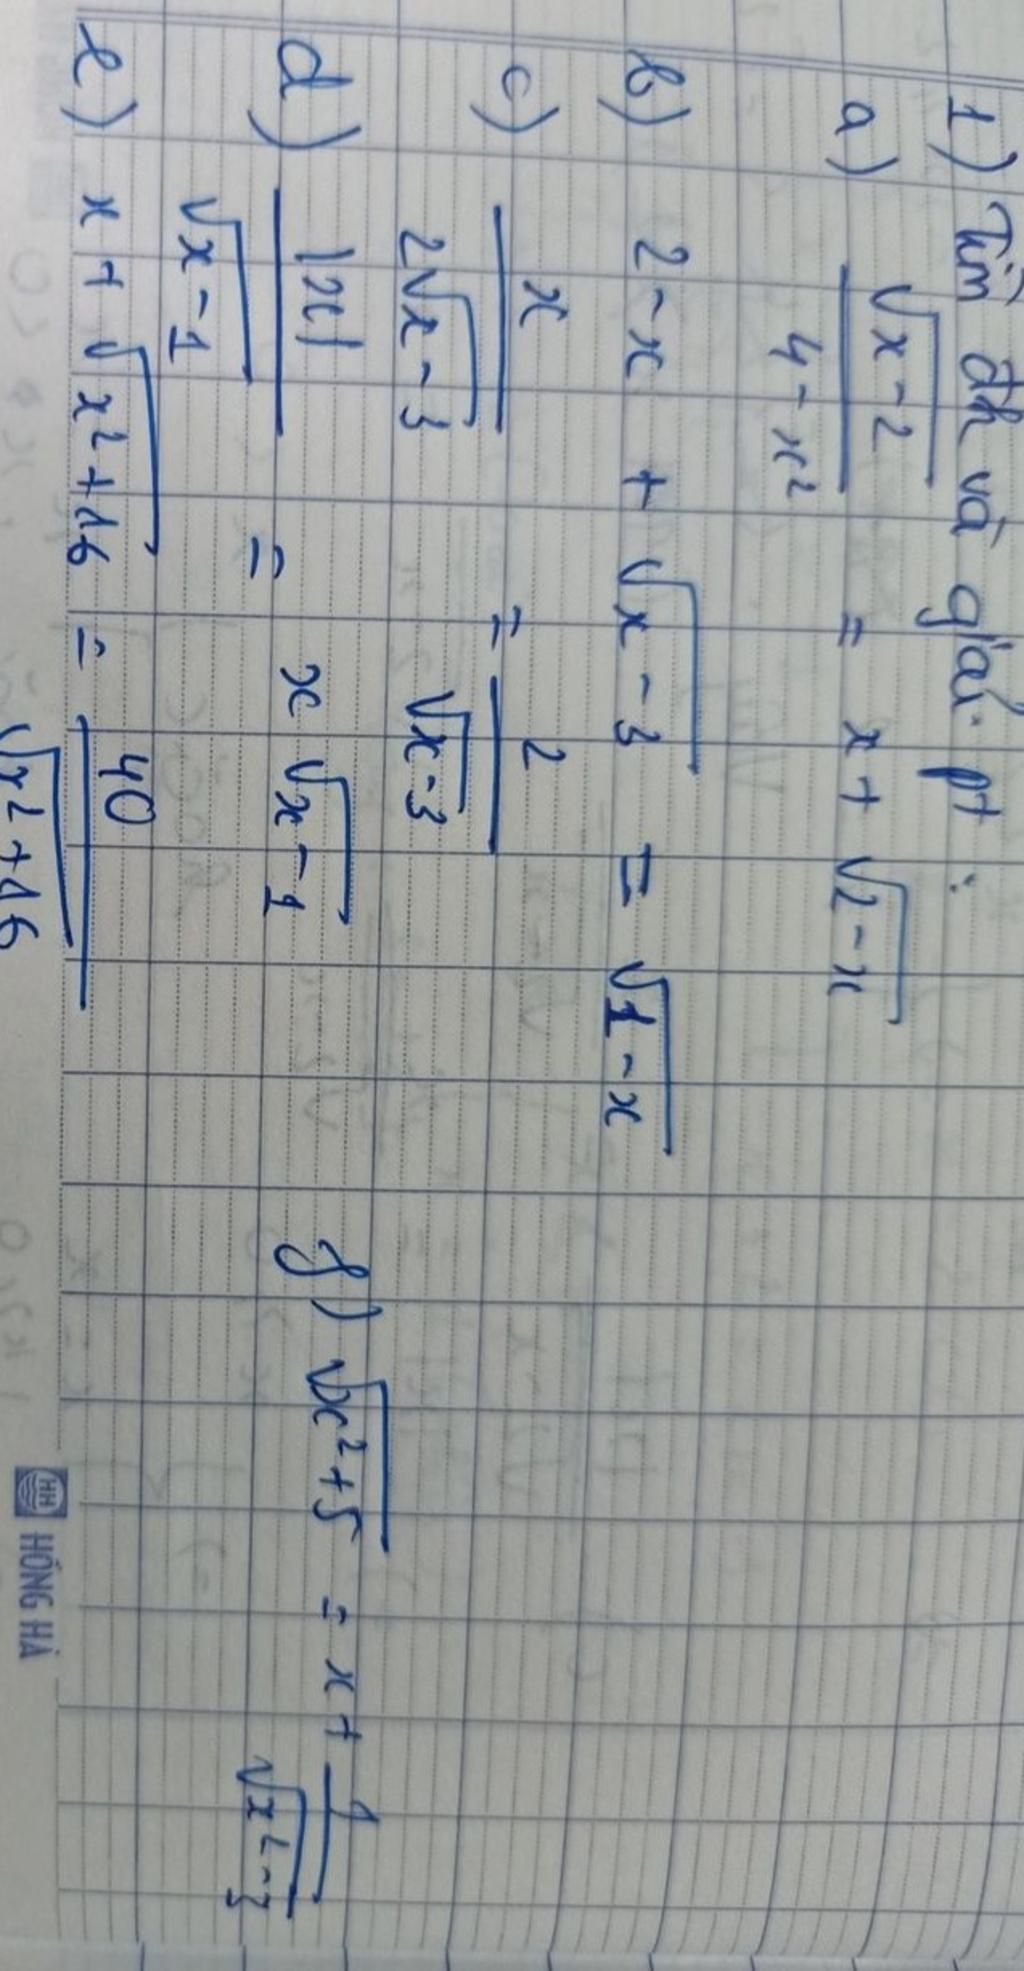 1) Tìm đk và giải pt :
a) \frac{\sqrt{x-2}}{4-x^2} = x + \sqrt{2-x}
b) 2-x + \sqrt{x-3} = \sqrt{1-x}
c) \frac{x}{2\sqrt{x-3}} = \frac{2}{\sqrt{x-3}}
d) \frac{|x|}{\sqrt{x-1}} = x\sqrt{x-1}
f) \sqrt{x^2+5} = x + \frac{1}{\sqrt{x^2-3}}
e) x + \sqrt{x^2+16} = \frac{40}{\sqrt{x^2+16}}
HH HỒNG HÀ